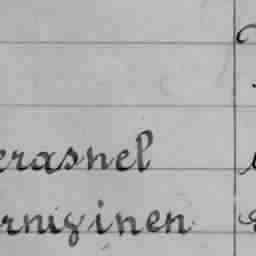 erasnel
rnizinen